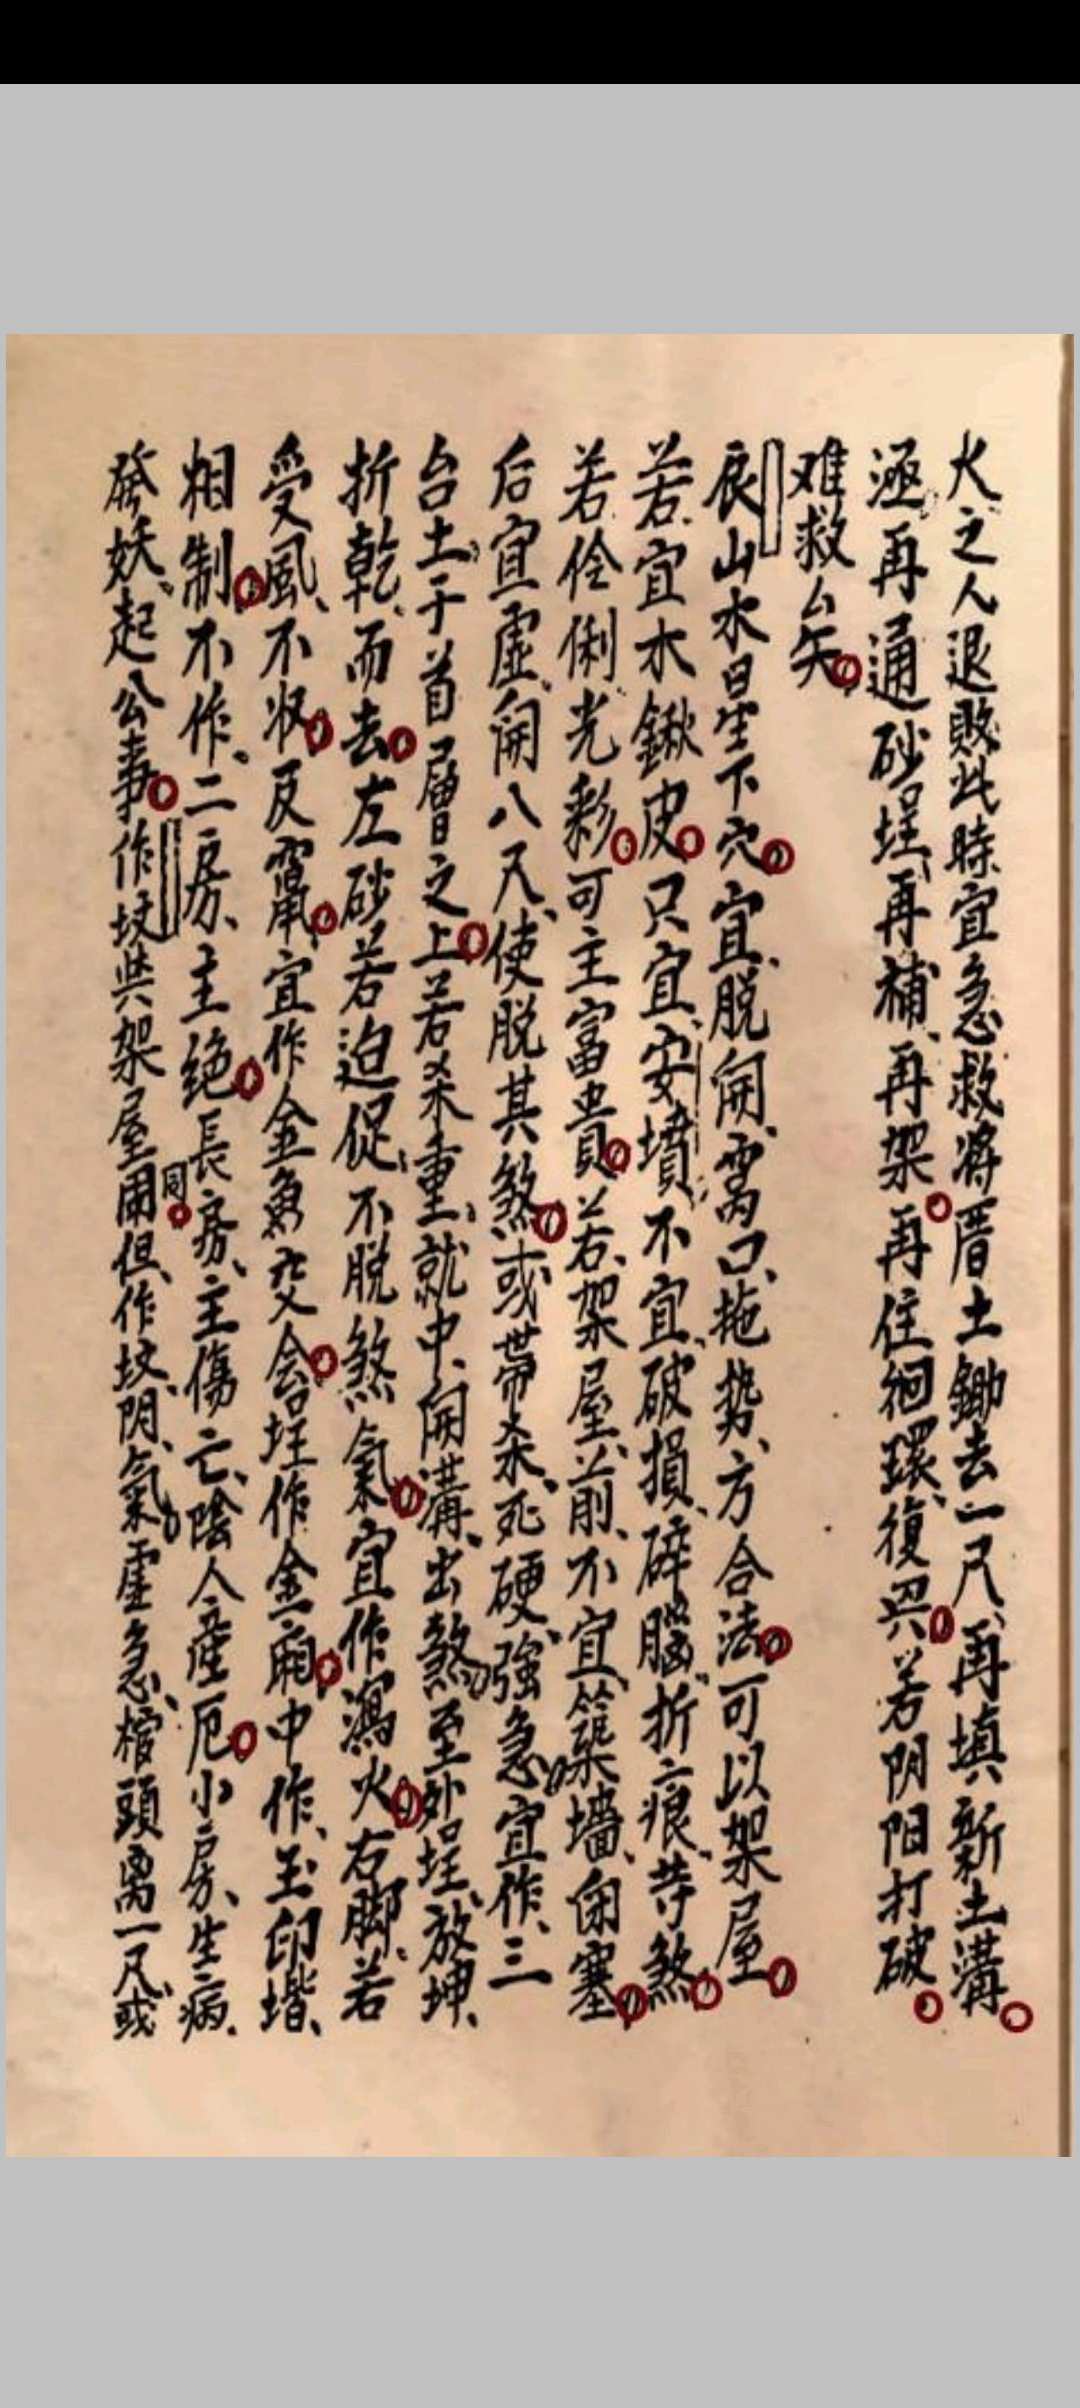 火之人退敗此時宜急救將厝土鋤去一尺、再填新土溝。
涵、再通砂埕、再補、再架。再住徊環、復興。若阴阳打破。
难救厶矣。
艮山水星下穴。宜、脱開、窩口、拖势、方合法。可以架屋。
若宜水鍬皮。只宜、安墳、不宜、破損、碎腦、折痕、苦煞。
若伶俐光彩。可主富貴。若、架屋、前、不宜、築墻、闭塞。
后宜虛、開八尺、使脱其煞。或帶杀、死硬、強急、宜作、三
台土于首層之上。若杀重、就中、開溝、出煞、至外埕、放坤、
折乾、而去。左砂若迫促、不脱煞氣。宜作瀉火。右脚、若
受風、不收。反竄。宜作金魚交会。坵作金廂。中作、玉印堦、
相制。不作、二房、主绝。長房、主傷亡、陰人産厄。小房、生病、
發妖、起公事。作坟與架屋同。但、作坟、阴、氣、虛急、棺頭离一尺、或